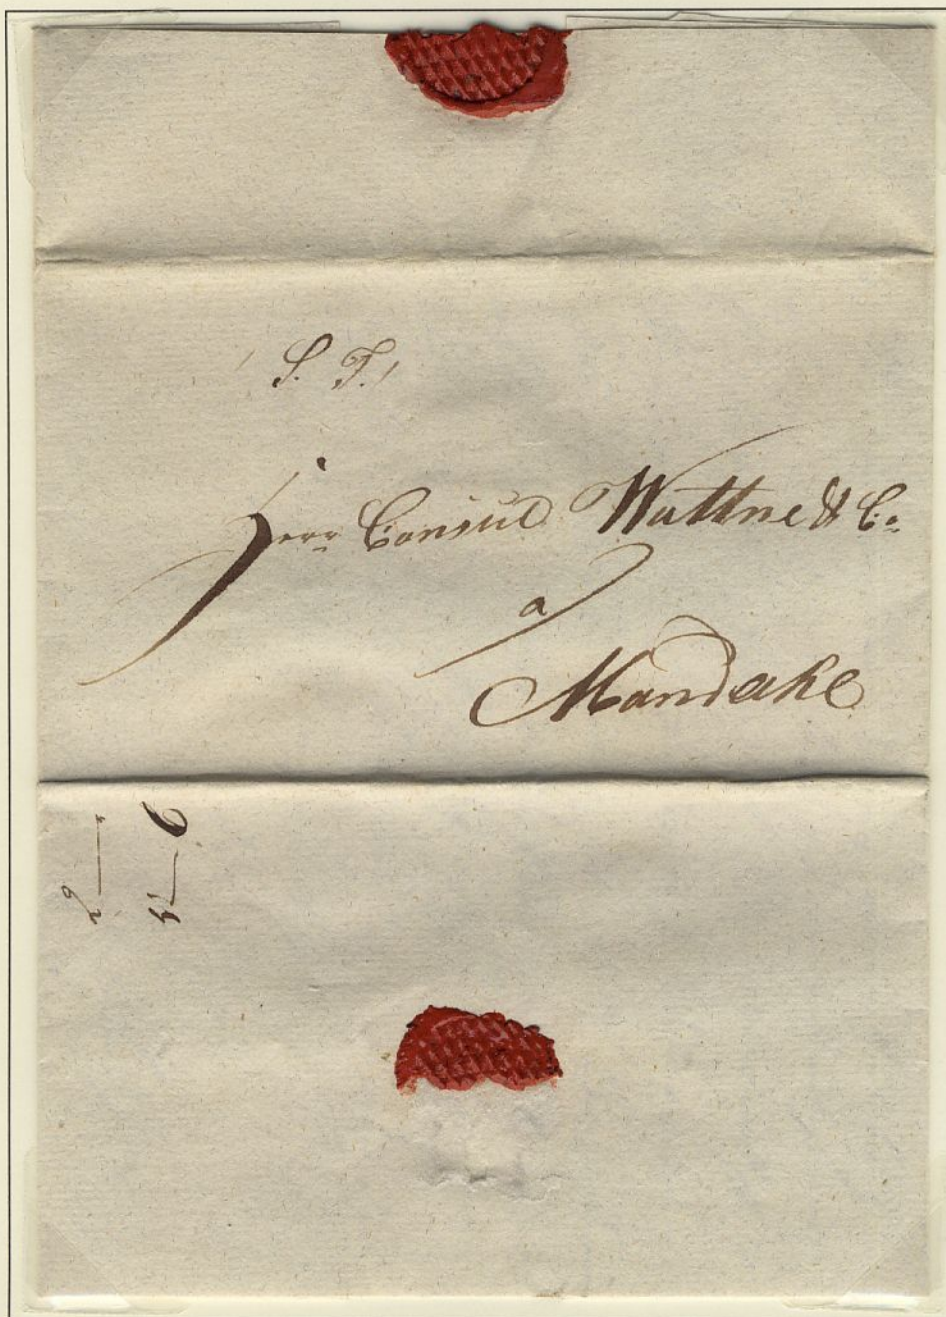 S. T.
Herr Consul Wattne & Co.
a
Mandahl